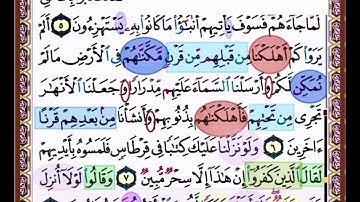 لَمَّا جَآءَهُمْ فَسَوْفَ يَأْتِيهِمْ أَنۢبَٰٓؤُا۟ مَا كَانُوا۟ بِهِۦ يَسْتَهْزِءُونَ ۝٥ أَلَمْ
يَرَوْا۟ كَمْ أَهْلَكْنَا مِن قَبْلِهِم مِّن قَرْنٍ مَّكَّنَّٰهُمْ فِى ٱلْأَرْضِ مَا لَمْ
نُمَكِّن لَّكُمْ وَأَرْسَلْنَا ٱلسَّمَآءَ عَلَيْهِم مِّدْرَارًا وَجَعَلْنَا ٱلْأَنْهَٰرَ
تَجْرِى مِن تَحْتِهِمْ فَأَهْلَكْنَٰهُم بِذُنُوبِهِمْ وَأَنشَأْنَا مِنۢ بَعْدِهِمْ قَرْنًا
ءَاخَرِينَ ۝٦ وَلَوْ نَزَّلْنَا عَلَيْكَ كِتَٰبًا فِى قِرْطَاسٍ فَلَمَسُوهُ بِأَيْدِيهِمْ
لَقَالَ ٱلَّذِينَ كَفَرُوٓا۟ إِنْ هَٰذَآ إِلَّا سِحْرٌ مُّبِينٌ ۝٧ وَقَالُوا۟ لَوْلَآ أُنزِلَ